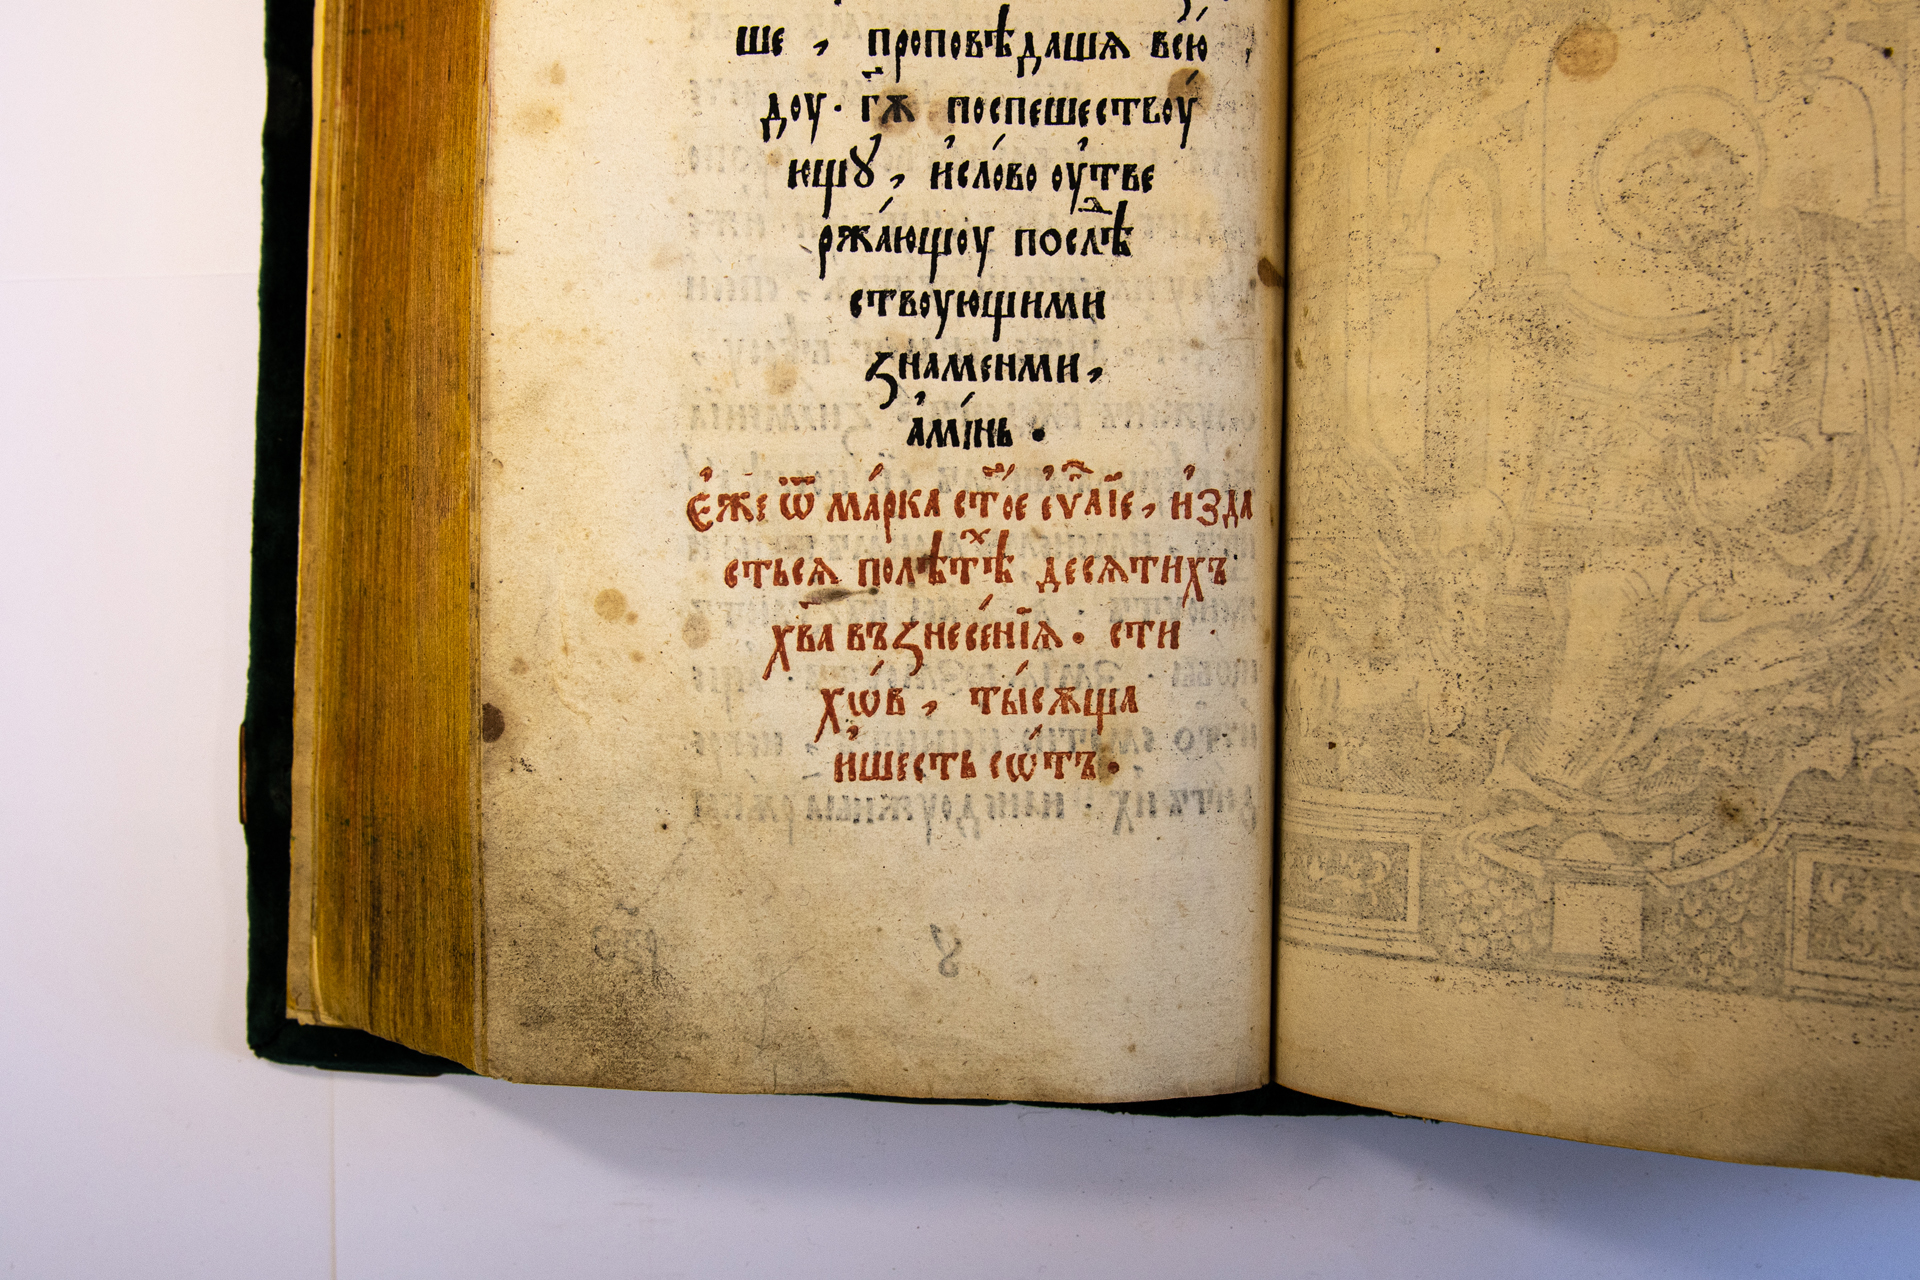 ше , проповѣдашѧ всю́
доу · гⷭ҇ѫ поспешествоу́
ющꙋ́ , и҆сло́во оу҆тве
ржа́ющоу послѣⷣ
ствоующими
ꙁнаменми ,
а҆мі́нь ·
Е҆же ѿ ма́рка ст҃ое є҆ѵⷢ҇лїе , и҆зда
стьсѧ полѣтѣⷯ десѧтихъ
хв҃а въꙁнесе́нїѧ · сти
хѡ́в , ты́сѫща
и҆шесть сѡ́тъ ·